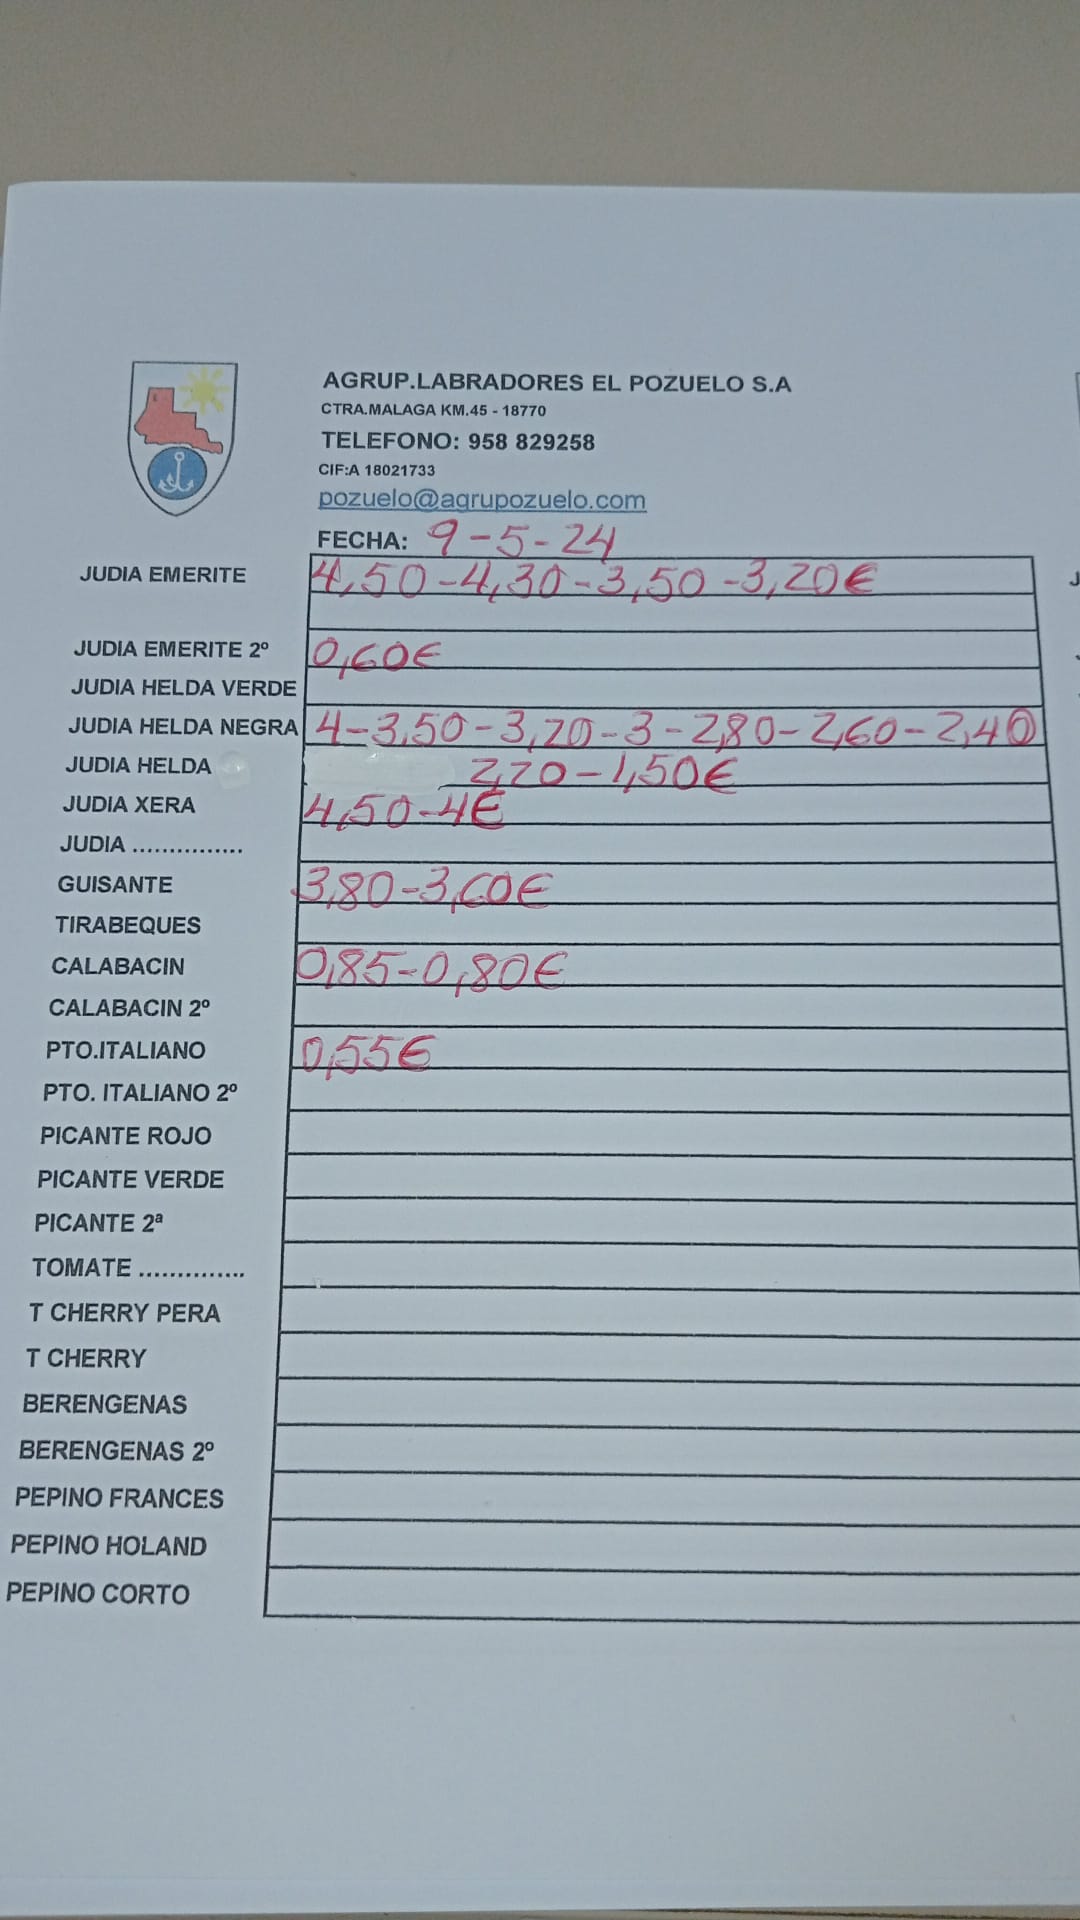 AGRUP.LABRADORES EL POZUELO S.A
CTRA.MALAGA KM.45 - 18770
TELEFONO: 958 829258
CIF:A 18021733
pozuelo@agrupozuelo.com
FECHA: 9-5-24
JUDIA EMERITE 4,50-4,30-3,50-3,20€
JUDIA EMERITE 2º 0,60€
JUDIA HELDA VERDE
JUDIA HELDA NEGRA 4-3,50-3,20-3-2,80-2,60-2,40
JUDIA HELDA 2,20-1,50€
JUDIA XERA 4,50-4€
JUDIA ...............
GUISANTE 3,80-3,60€
TIRABEQUES
CALABACIN 0,85-0,80€
CALABACIN 2º
PTO.ITALIANO 0,55€
PTO. ITALIANO 2º
PICANTE ROJO
PICANTE VERDE
PICANTE 2ª
TOMATE ..............
T CHERRY PERA
T CHERRY
BERENGENAS
BERENGENAS 2º
PEPINO FRANCES
PEPINO HOLAND
PEPINO CORTO